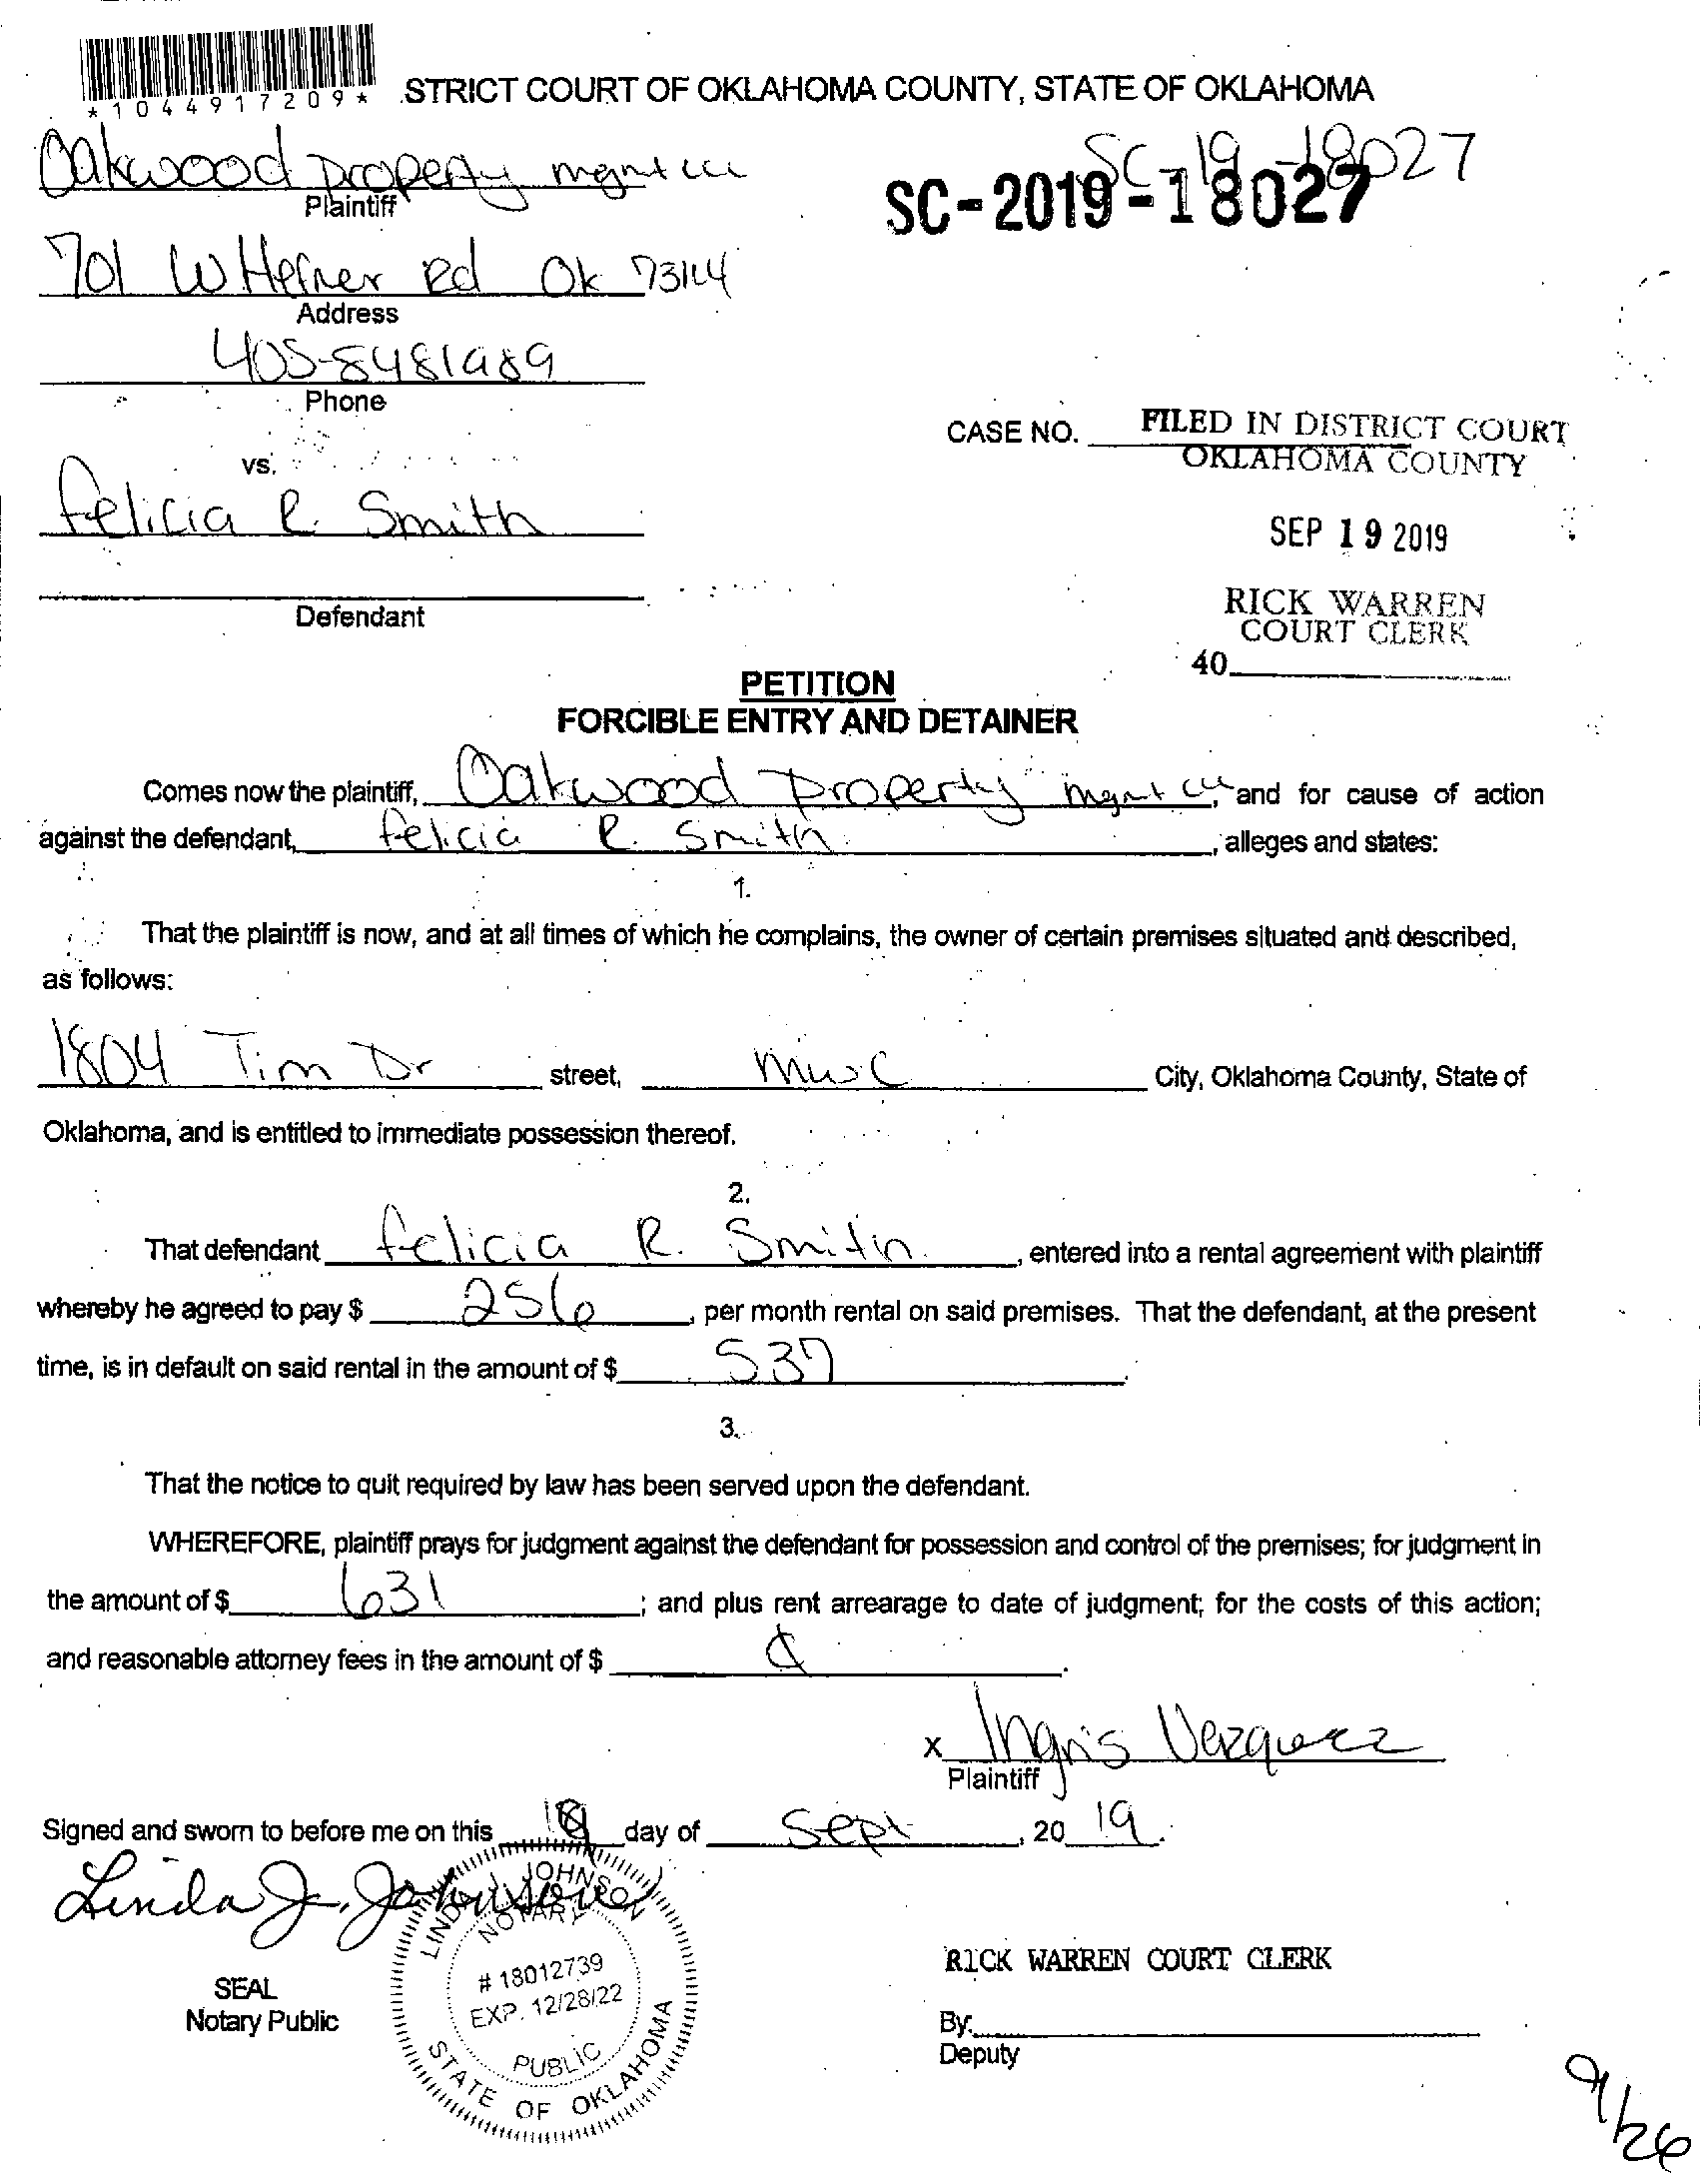 *1044917209*
STRICT COURT OF OKLAHOMA COUNTY, STATE OF OKLAHOMA
Oakwood Property mgmt LLC
Plaintiff
SC-19-18027
SC-2019-18027
701 W Hefner Rd Ok 73114
Address
405-8481989
Phone
CASE NO.
FILED IN DISTRICT COURT
OKLAHOMA COUNTY
vs.
Felicia R. Smith
SEP 19 2019
Defendant
RICK WARREN
COURT CLERK
40
PETITION
FORCIBLE ENTRY AND DETAINER
Comes now the plaintiff, Oakwood Property mgmt LLC, and for cause of action
against the defendant, Felicia R. Smith, alleges and states:
1.
That the plaintiff is now, and at all times of which he complains, the owner of certain premises situated and described,
as follows:
1804 Tim Dr street, MWC City, Oklahoma County, State of
Oklahoma, and is entitled to immediate possession thereof.
2.
That defendant Felicia R. Smith, entered into a rental agreement with plaintiff
whereby he agreed to pay $ 256, per month rental on said premises. That the defendant, at the present
time, is in default on said rental in the amount of $ 537.
3.
That the notice to quit required by law has been served upon the defendant.
WHEREFORE, plaintiff prays for judgment against the defendant for possession and control of the premises; for judgment in
the amount of $ 631; and plus rent arrearage to date of judgment; for the costs of this action;
and reasonable attorney fees in the amount of $
x Ingris Vezquez
Plaintiff
Signed and sworn to before me on this 19 day of Sept, 20 19.
Linda J. Johnson
LINDA J JOHNSON
NOTARY
# 18012739
EXP. 12/28/22
PUBLIC
STATE OF OKLAHOMA
SEAL
Notary Public
RICK WARREN COURT CLERK
By:
Deputy
9/26